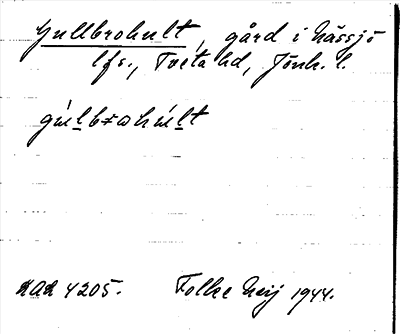 Gullbrohult, gård i Nässjö
lfs., Tveta hd, Jönk. l.
gúlbrωhúlt
ULMA 4205. Folke Neij 1944.